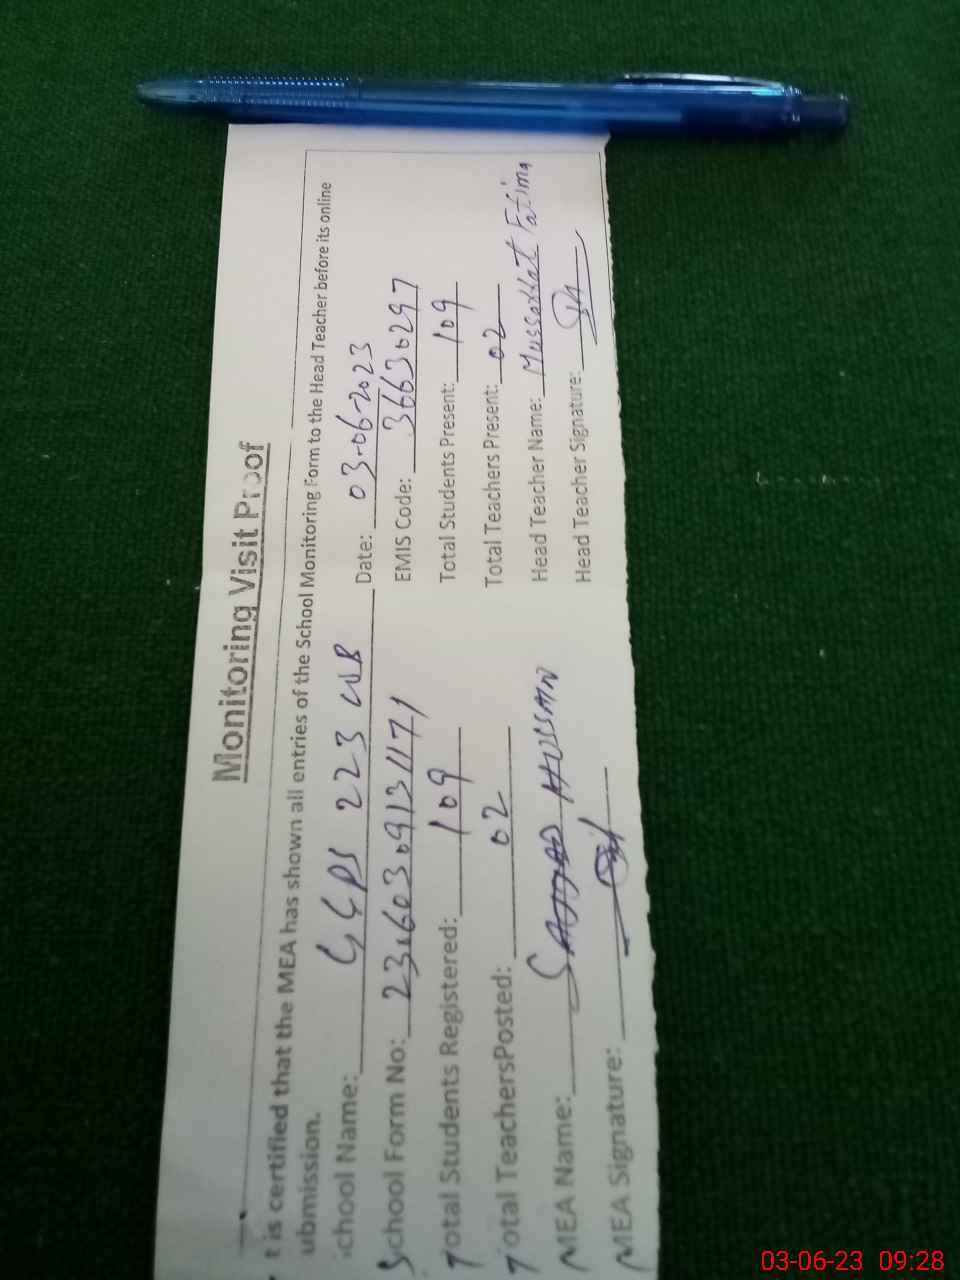 Monitoring Visit Proof
t is certified that the MEA has shown all entries of the School Monitoring Form to the Head Teacher before its online
ubmission.
chool Name: GGPS 223 WB Date: 03-06-2023
School Form No: EMIS Code: 36630297
Total Students Registered: 109 Total Students Present: 109
Total TeachersPosted: 02 Total Teachers Present: 02
MEA Name: SAJJAD HUSSAIN Head Teacher Name: Mussarrat Fatima
MEA Signature: Head Teacher Signature:
03-06-23 09:28